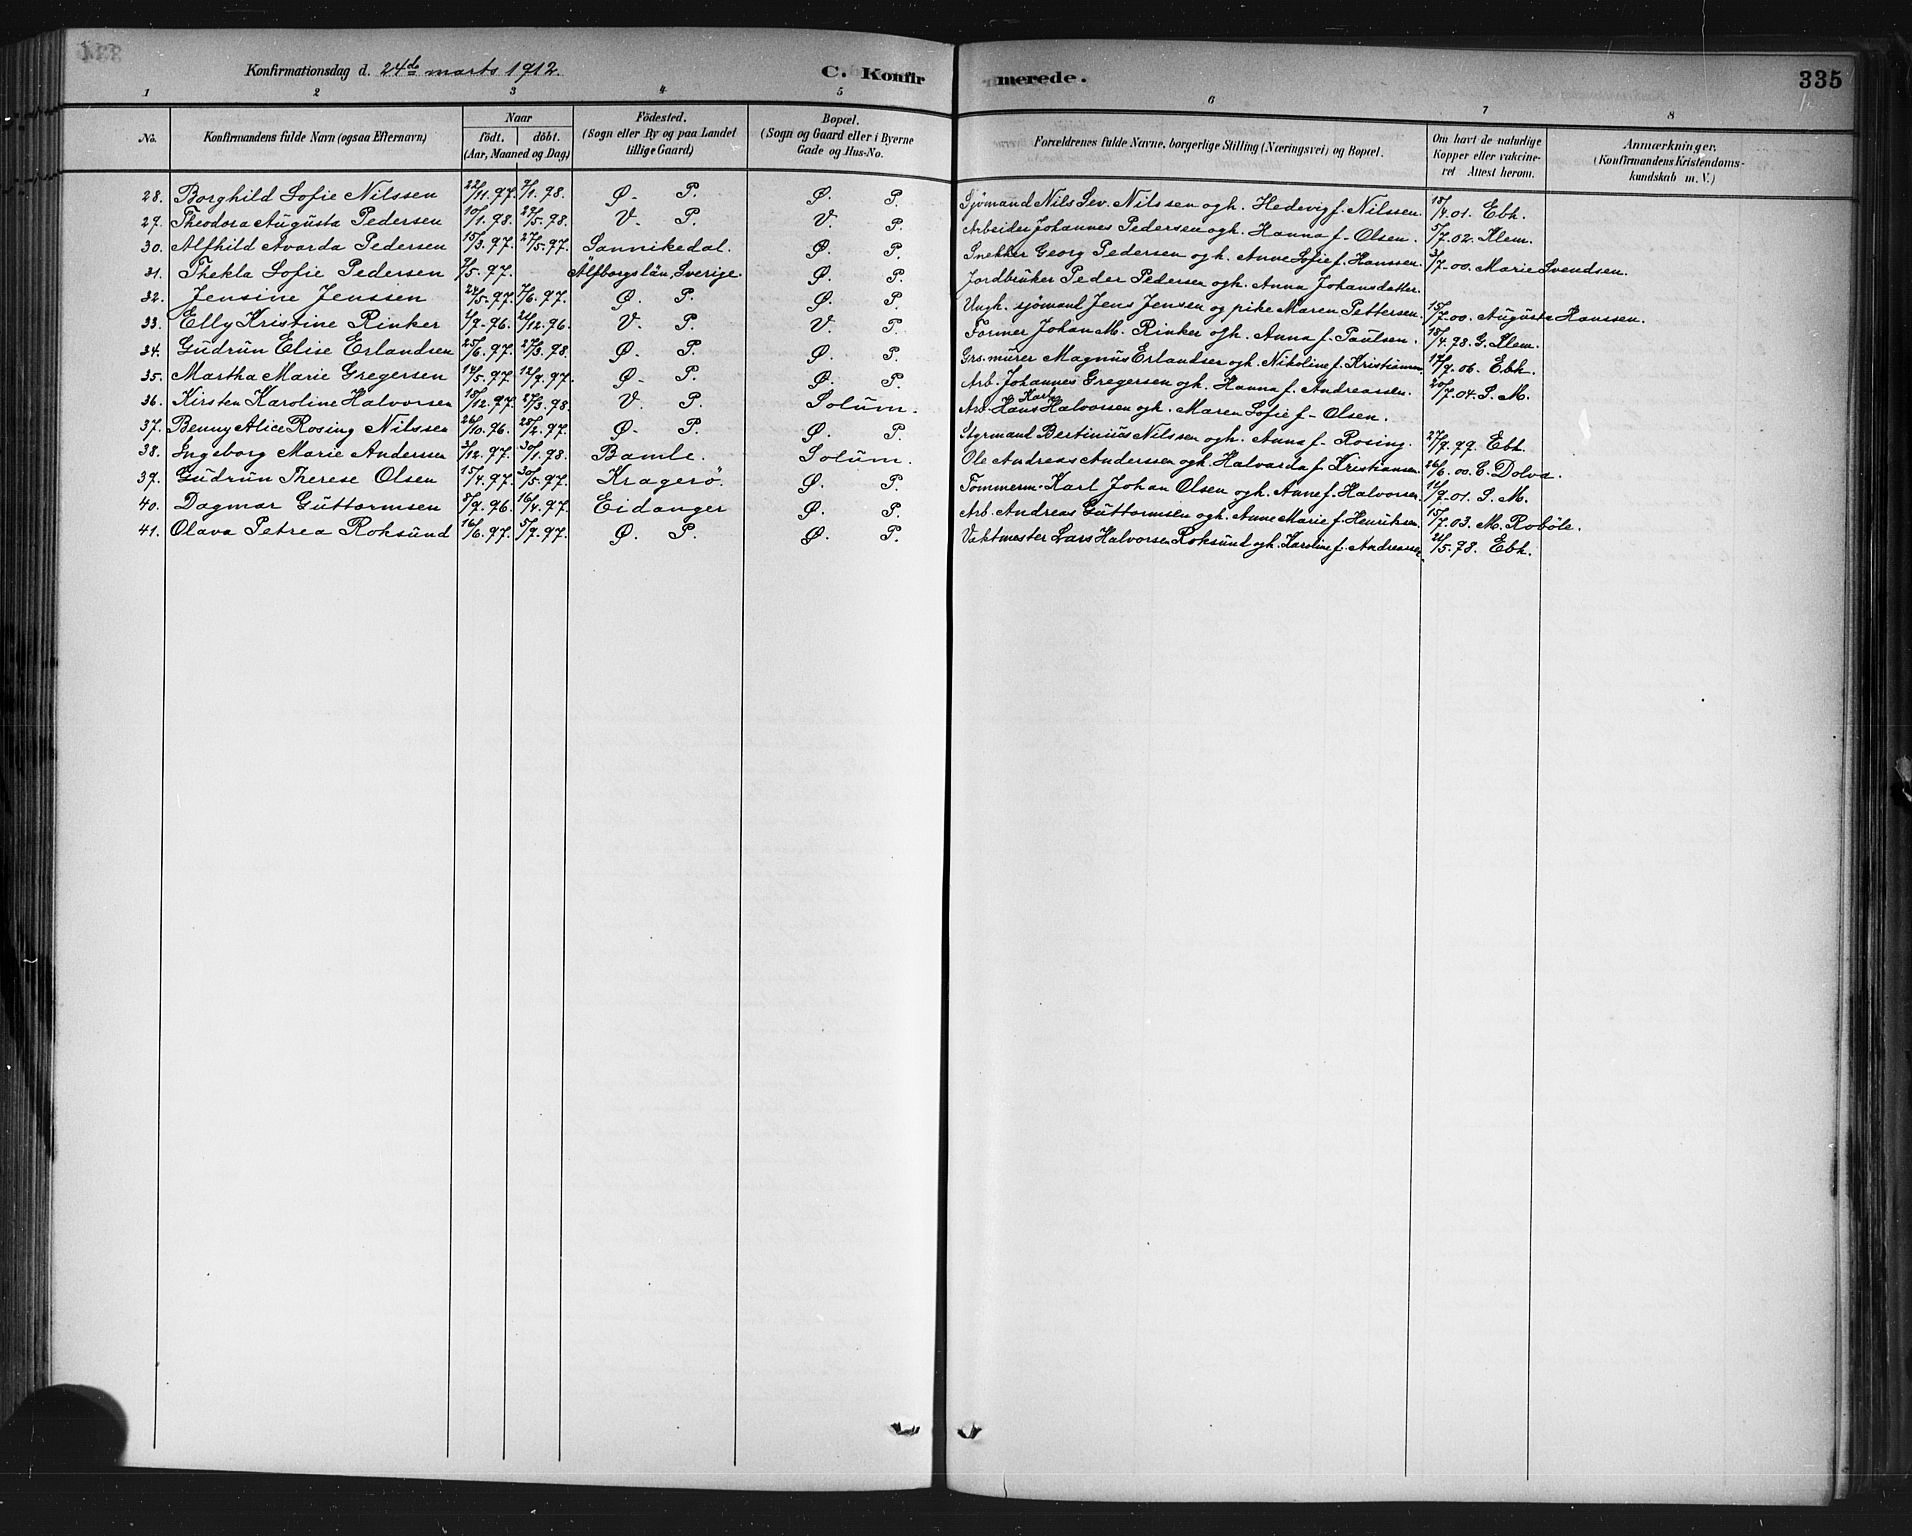 Konfirmationsdag d. 24de marts 1912. C. Konfirmerede. 335
1 2 3 4 5 6 7 8
No. Konfirmandens fulde Navn (ogsaa Efternavn) Naar födt. döbt. (Aar, Maaned og Dag) Födested. (Sogn eller By og paa Landet tillige Gaard) Bopæl. (Sogn og Gaard eller i Byerne Gade og Hus-No. Forældrenes fulde Navne, borgerlige Stilling (Næringsvei) og Bopæl. Om havt de naturlige Kopper eller vakcineret Attest herom. Anmærkninger. (Konfirmandens Kristendomskundskab m. V.)
28. Borghild Sofie Nilssen 22/11.97. 9/1.98. Ø. P. Ø. P. Sjömand Nils Sev. Nilssen og h. Hedevig f. Nilssen. 18/4.01. Ebh.
29. Theodora Augusta Pedersen 10/1.98. 29/5.98. V. P. V. P. Arbeider Johannes Pedersen og h. Hanna f. Olsen. 5/7.02. Klem.
30. Alfhild Avarda Pedersen 15/3.97. 27/5.97. Sannikedal. Ø. P. Snekker Georg Pedersen og h. Anne Sofie f. Hanssen. 31/7.00. Marie Svendsen.
31. Thekla Sofie Pedersen /5.97. Älfborgslän, Sverige. Ø. P. Jordbruker Peder Pedersen og h. Anna Johansdatter.
32. Jensine Jenssen 24/5.97. 7/6.97. Ø. P. Ø. P. Ungk. sjömand Jens Jensen og pike Maren Pettersen. 15/7.00. Augusta Hanssen.
33. Elly Kristine Rinker /9.96. /12.96. V. P. V. P. Former Johan M. Rinker og h. Anna f. Paulsen. 18/4.98. G. Klem.
34. Gudrun Elise Erlandsen 25/6.97. 27/3.98. Ø. P. Ø. P. Grs. murer Magnus Erlandsen og h. Nikoline f. Kristiansen. 17/9.06. Ebh.
35. Martha Marie Gregersen 14/5.97. 12/9.97. Ø. P. Ø. P. Arb. Johannes Gregersen og h. Hanna f. Andreassen. 20/7.04. S. M.
36. Kirsten Karoline Halvorsen 18/12.97. 27/3.98. V. P. Solum. Arb. Hans Karl Halvorsen og h. Maren Sofie f. Olsen.
37. Benny Alice Rosing Nilssen 26/10.96. 28/2.97. Ø. P. Ø. P. Styrmand Bertinius Nilssen og h. Anna f. Rosing. 27/9.99. Ebh.
38. Ingeborg Marie Andersen 3/12.97. 30/1.98. Bamle. Solum. Ole Andreas Anderssen og h. Halvarda f. Kristiansen. 26/6.00. C. Dolva.
39. Gudrun Therese Olsen 15/4.97. 30/5.97. Kragerö. Ø. P. Tömmerm. Karl Johan Olsen og h. Anne f. Halvorsen. /9.01. S. M.
40. Dagmar Guttormsen 8/9.96. 16/4.97. Eidanger Ø. P. Arb. Andreas Guttormsen og h. Anne Marie f. Henriksen. 15/7.03. M. Roböle.
41. Olava Petrea Roksund 16/6.97. 5/9.97. Ø. P. Ø. P. Vaktmester Lars Halvorsen Roksund og h. Karoline f. Andreassen. 21/5.98. Ebh.